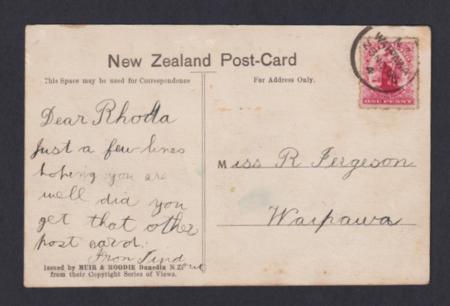 New Zealand Post-Card
This Space may be used for Correspondence
For Address Only.
Dear Rhoda
Just a few lines
hoping you are
well did you
get that other
post card.
From
Issued by MUIR & MOODIE Dunedin N.Z.
from their Copyright Series of Views.
Miss R Fergeson
Waipawa
WAIPAWA
ONE PENNY